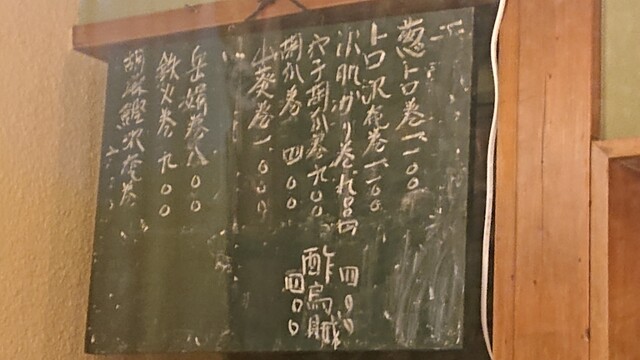 葱トロ巻一、一〇〇
トロ沢庵巻一、一〇〇
氷肌がり巻 四〇〇
穴子胡瓜巻九〇〇
胡瓜巻 四〇〇
山葵巻一、〇〇〇
岳婿巻八〇〇
鉄火巻 九〇〇
胡麻鰹沢庵巻
酢烏賊
四〇〇